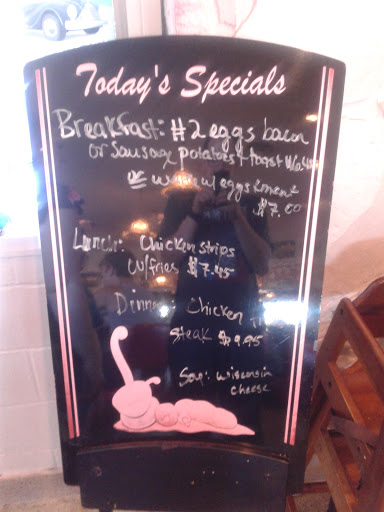 Today's Specials
Breakfast: #2 eggs bacon
or sausage potatoes & toast
or w/ eggs & meat
$7.00
Lunch: Chicken strips
w/fries $7.45
Dinner: Chicken
Steak $9.95
Soup: Wisconsin
cheese